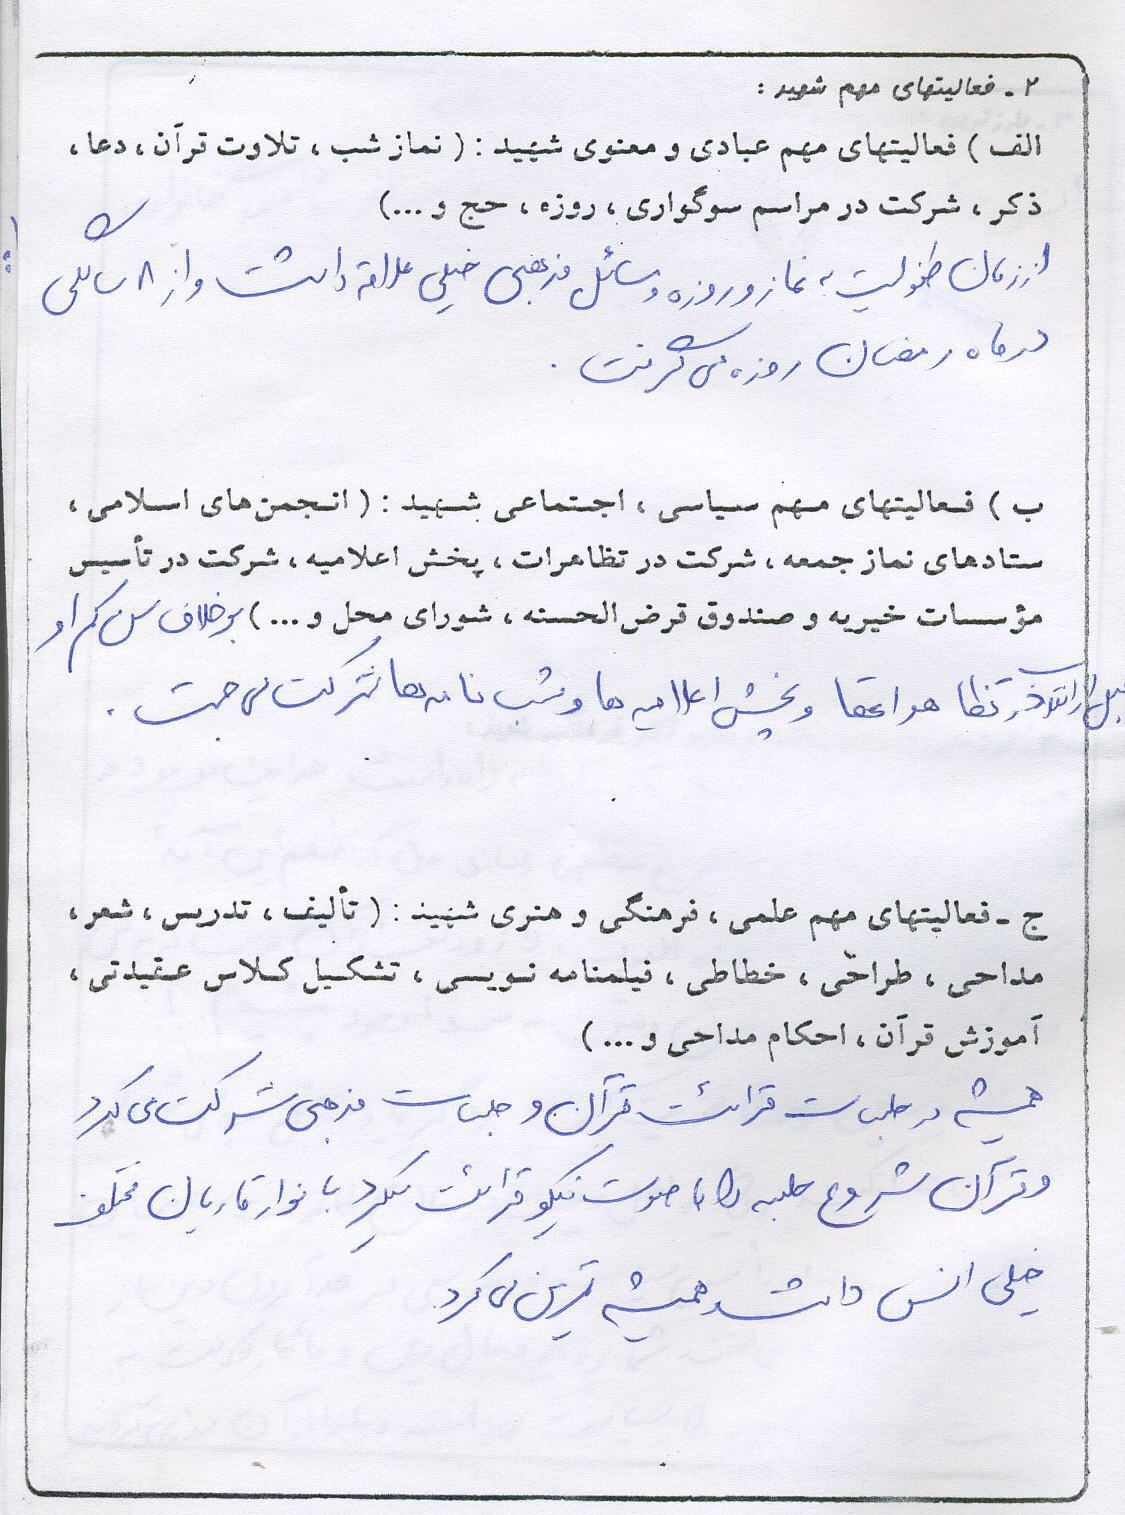 ۲ ـ فعالیتهای مهم شهید :
الف ) فعالیتهای مهم عبادی و معنوی شهید : ( نماز شب ، تلاوت قرآن ، دعا ،
ذکر ، شرکت در مراسم سوگواری ، روزه ، حج و ...)
از زمان طفولیت به نماز و روزه و مسائل مذهبی خیلی علاقه داشت و از ۸ سالگی
در ماه رمضان روزه می گرفت .
ب ) فعالیتهای مهم سیاسی ، اجتماعی شهید : ( انجمن‌های اسلامی ،
ستادهای نماز جمعه ، شرکت در تظاهرات ، پخش اعلامیه ، شرکت در تأسیس
مؤسسات خیریه و صندوق قرض‌الحسنه ، شورای محل و ... ) برخلاف سن کم او
قبل از انقلاب در و پخش اعلامیه ها و شب نامه ها شرکت می جست .
ج ـ فعالیتهای مهم علمی ، فرهنگی و هنری شهید : ( تألیف ، تدریس ، شعر ،
مداحی ، طراحی ، خطاطی ، فیلمنامه نویسی ، تشکیل کلاس عقیدتی ،
آموزش قرآن ، احکام مداحی و ... )
همیشه در جلسات قرائت قرآن و جلسات مذهبی شرکت می کرد
و قرآن شروع جلسه را با صوت نیکو قرائت میکرد با نوار قاریان مختلف
خیلی انس داشت و همیشه تمرین می کرد.